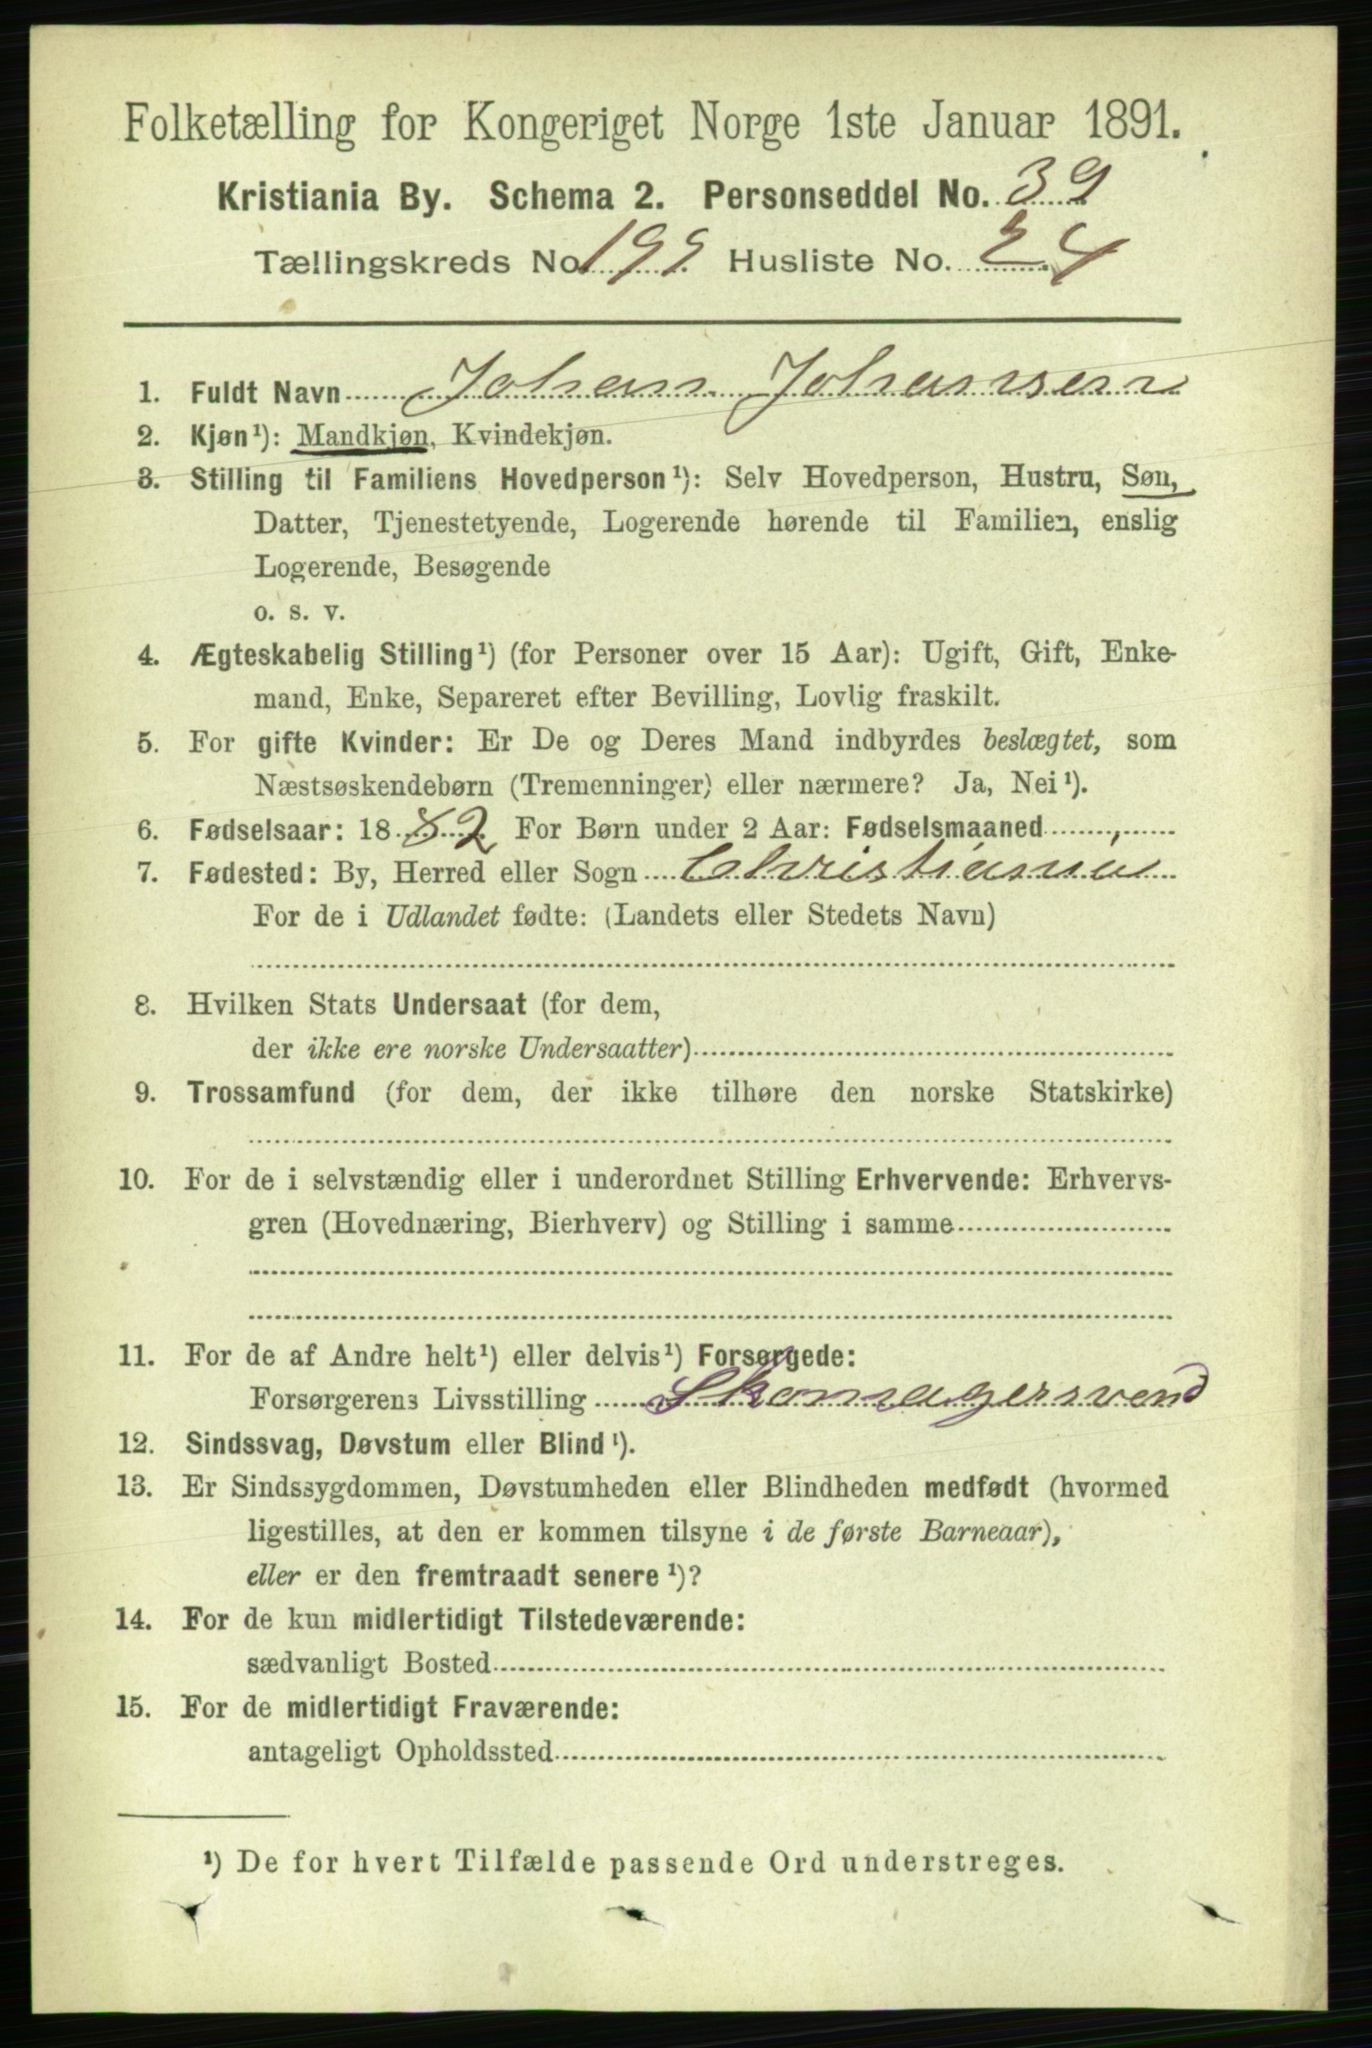 Folketælling for Kongeriget Norge 1ste Januar 1891.
Kristiania By. Schema 2. Personseddel No. 39
Tællingskreds No. 199 Husliste No. 24
1. Fuldt Navn Johan Johansen
2. Kjøn¹): Mandkjøn, Kvindekjøn.
3. Stilling til Familiens Hovedperson¹): Selv Hovedperson, Hustru, Søn,
Datter, Tjenestetyende, Logerende hørende til Familien, enslig
Logerende, Besøgende
o. s. v.
4. Ægteskabelig Stilling¹) (for Personer over 15 Aar): Ugift, Gift, Enke-
mand, Enke, Separeret efter Bevilling, Lovlig fraskilt.
5. For gifte Kvinder: Er De og Deres Mand indbyrdes beslægtet, som
Næstsøskendebørn (Tremenninger) eller nærmere? Ja, Nei¹).
6. Fødselsaar: 1882 For Børn under 2 Aar: Fødselsmaaned
7. Fødested: By, Herred eller Sogn Christiania
For de i Udlandet fødte: (Landets eller Stedets Navn)
8. Hvilken Stats Undersaat (for dem,
der ikke ere norske Undersaatter)
9. Trossamfund (for dem, der ikke tilhøre den norske Statskirke)
10. For de i selvstændig eller i underordnet Stilling Erhvervende: Erhvervs-
gren (Hovednæring, Bierhverv) og Stilling i samme
11. For de af Andre helt¹) eller delvis¹) Forsørgede:
Forsørgerens Livsstilling Skomagersvend
12. Sindssvag, Døvstum eller Blind¹).
13. Er Sindssygdommen, Døvstumheden eller Blindheden medfødt (hvormed
ligestilles, at den er kommen tilsyne i de første Barneaar),
eller er den fremtraadt senere¹)?
14. For de kun midlertidigt Tilstedeværende:
sædvanligt Bosted
15. For de midlertidigt Fraværende:
antageligt Opholdssted
¹) De for hvert Tilfælde passende Ord understreges.